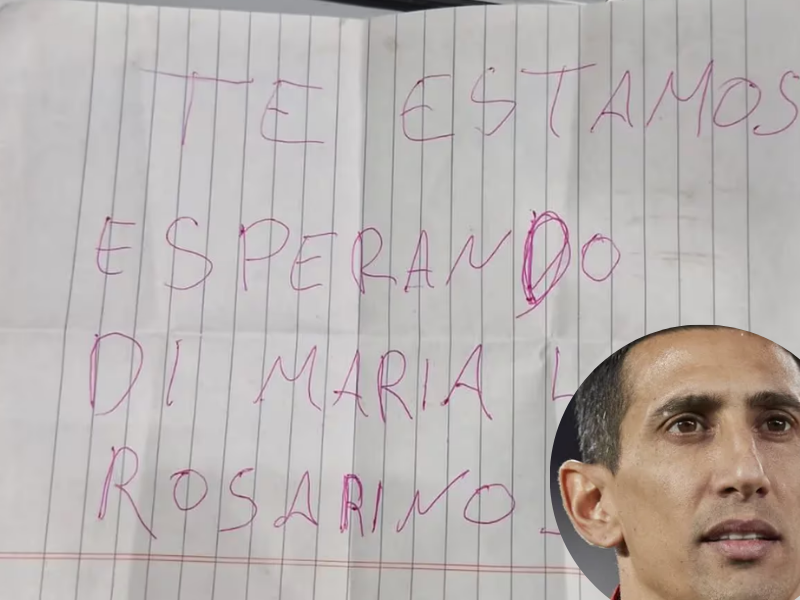 TE ESTAMOS
ESPERANDO
DI MARIA
ROSARINO